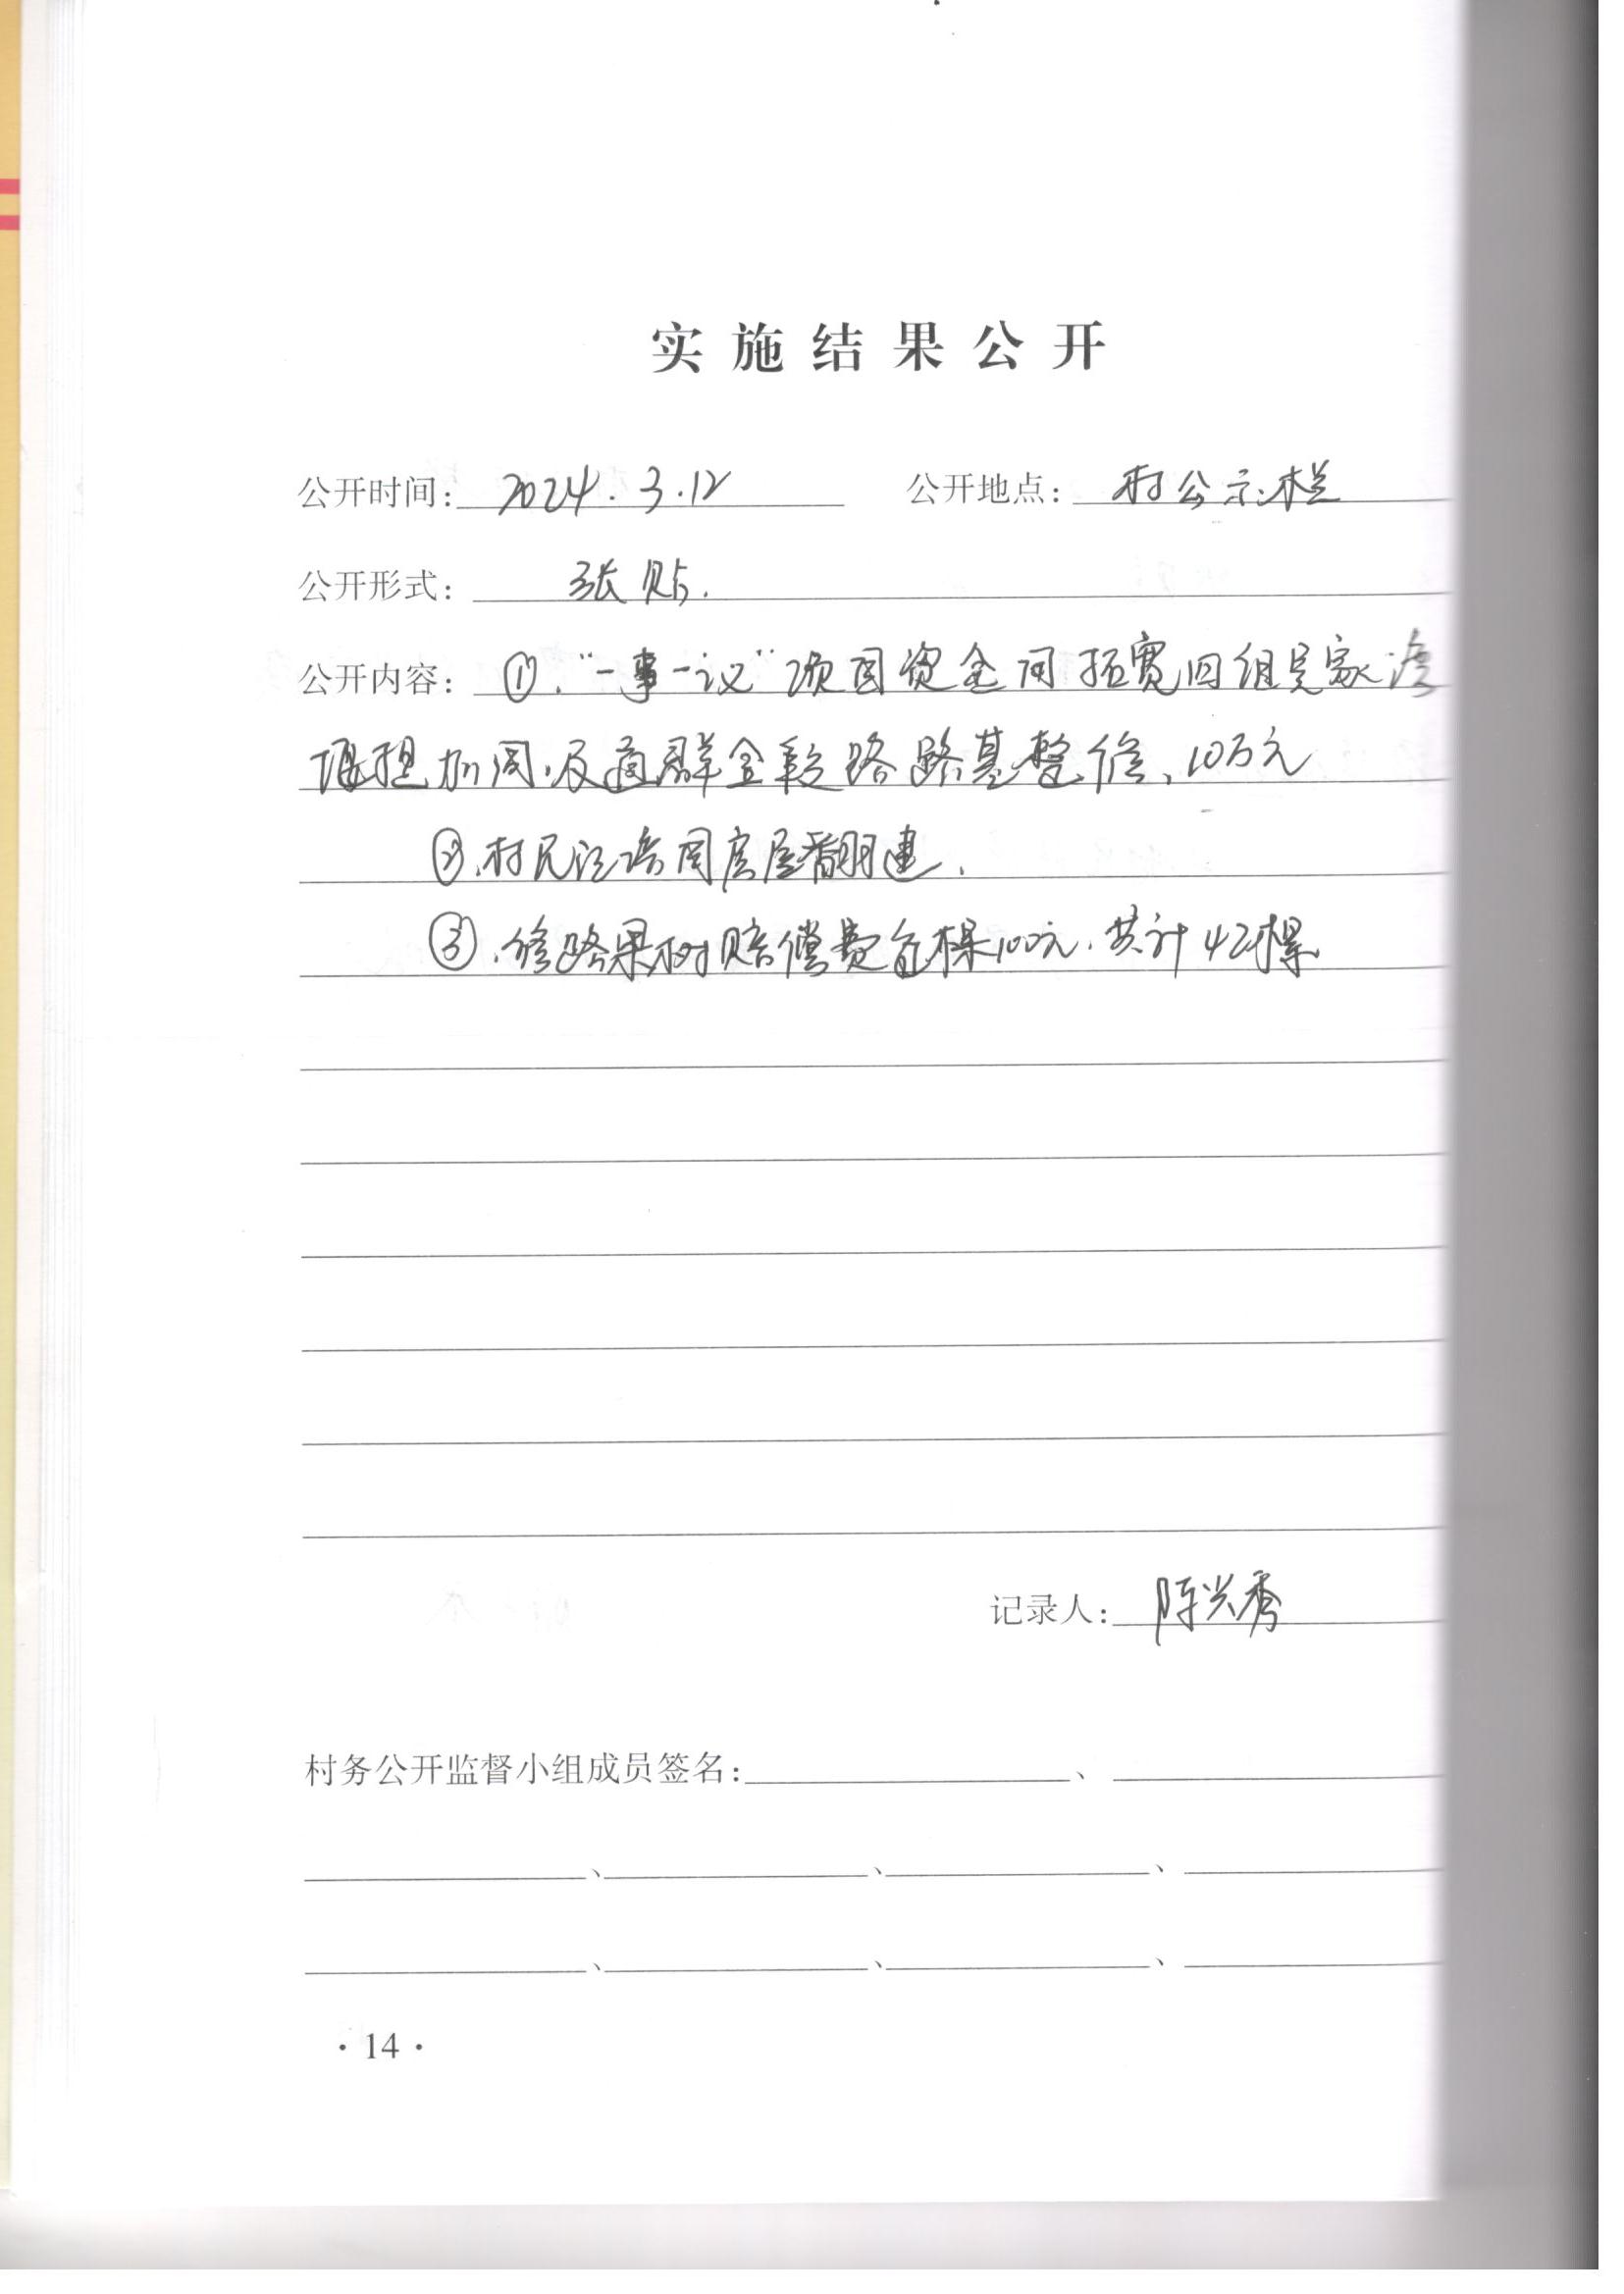 实施结果公开
公开时间: 2024.3.12 公开地点: 村公示栏
公开形式: 张贴.
公开内容: ①."一事一议"项目资金用拓宽四组吴家湾
堰堤加固.及商群金彩路路基整修、10万元
②.村民 国房屋翻建.
③.修路果树赔偿费每棵100元.共计42棵
记录人: 陈兴秀
村务公开监督小组成员签名: 、
、 、 、
、 、 、
·14·